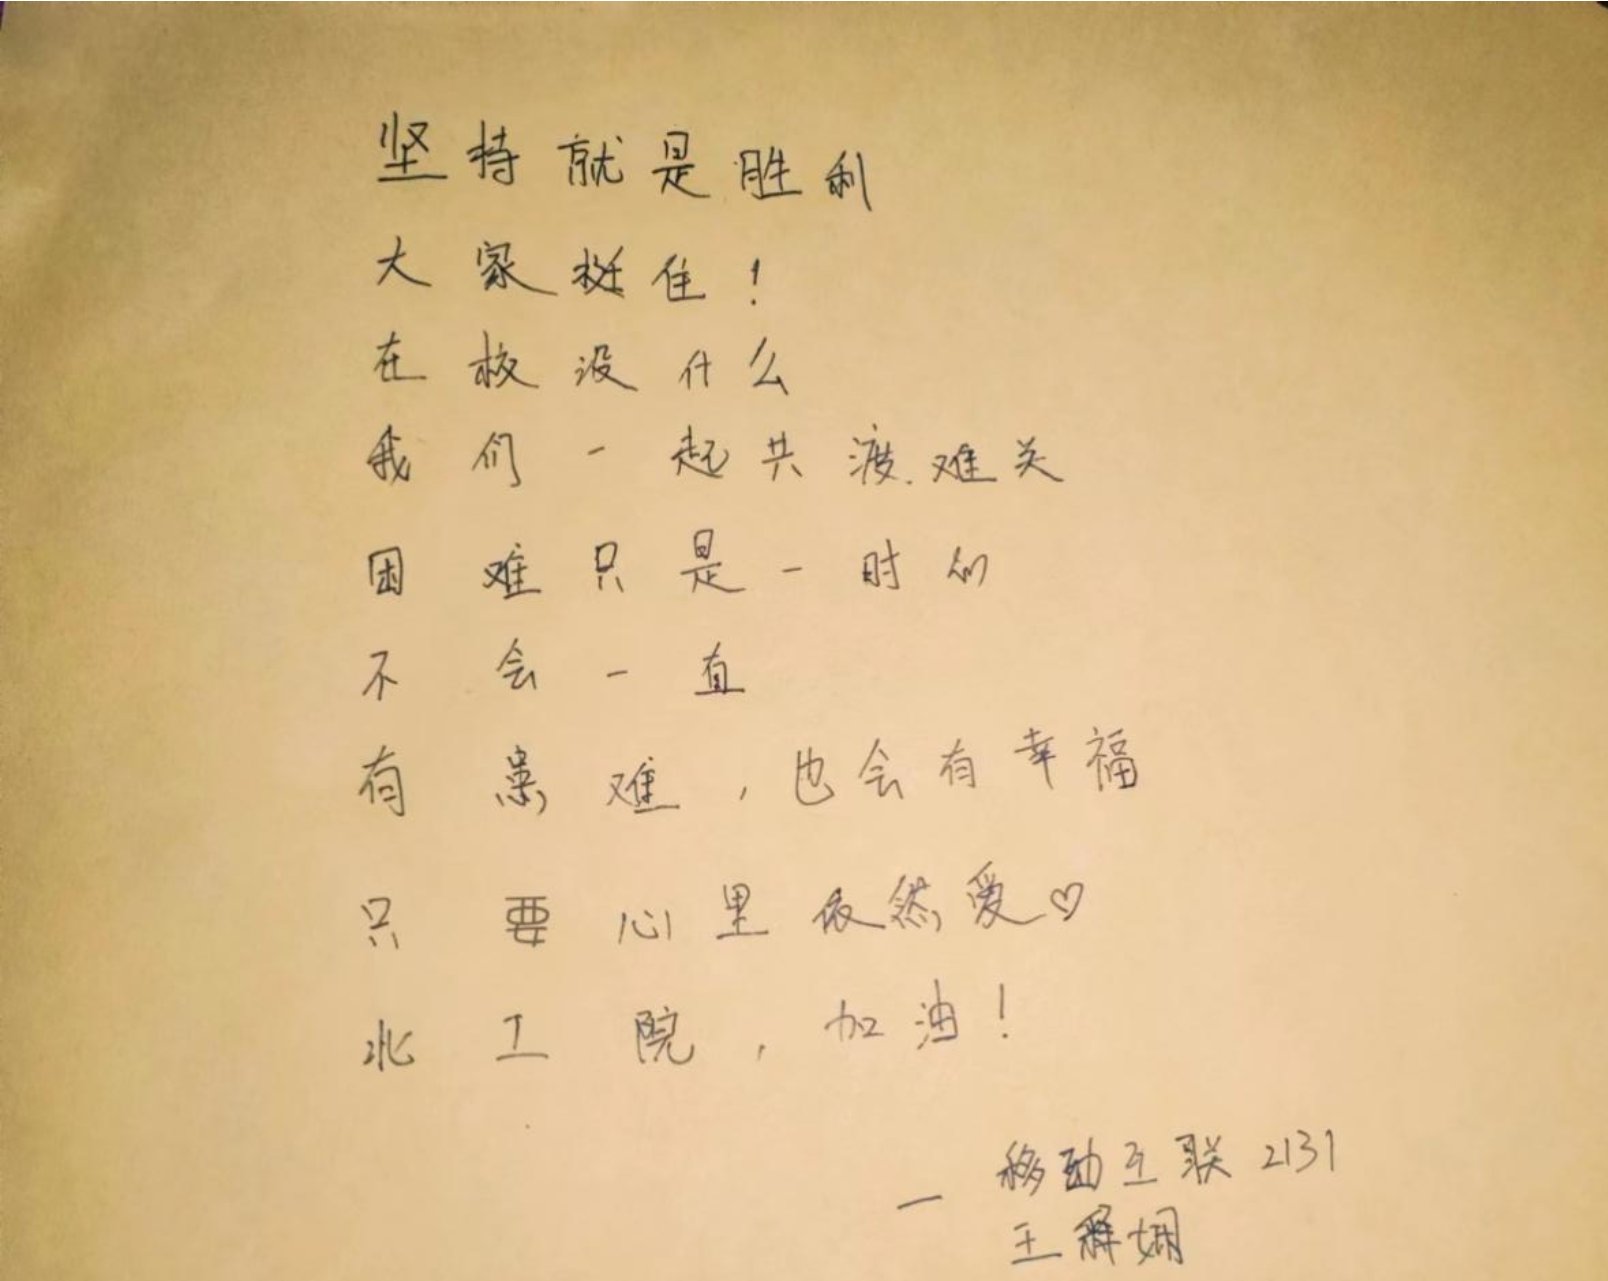 坚持就是胜利
大家挺住！
在校没什么
我们一起共渡难关
困难只是一时的
不会一直
有患难，也会有幸福
只要心里依然爱♡
北工院，加油！
— 移动互联2131
王